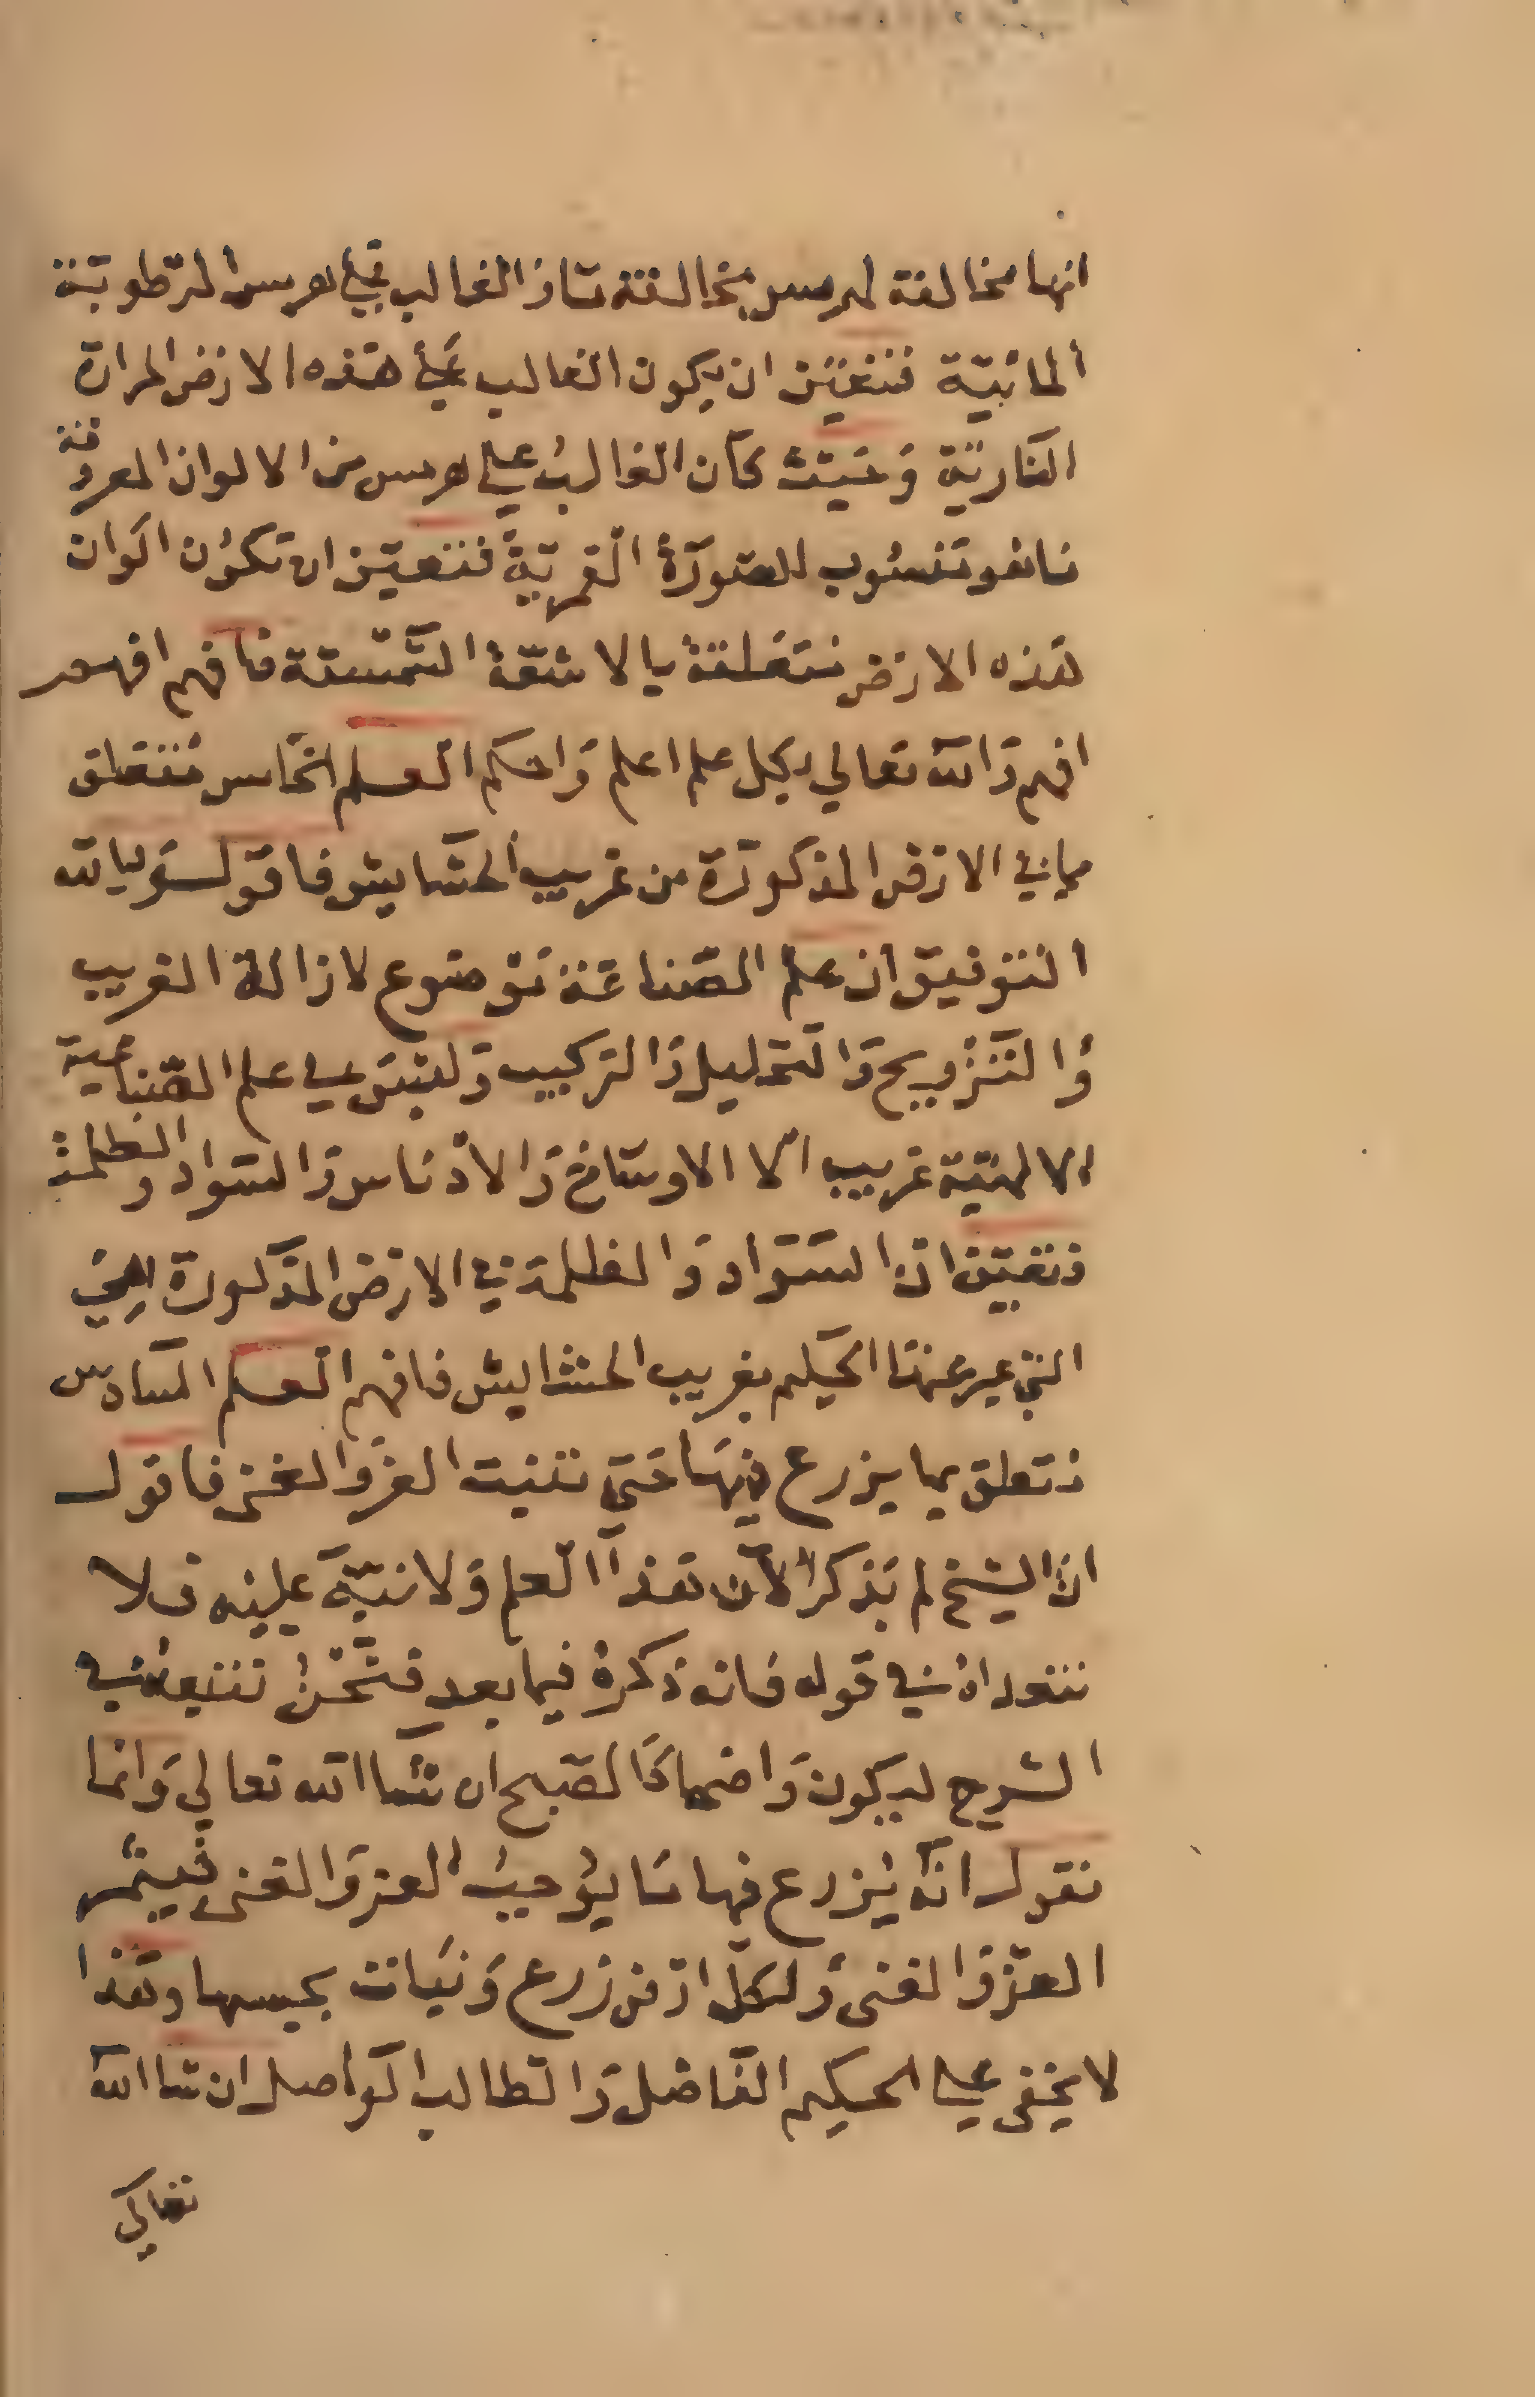 انها مخالفة لهرمس مخالفته فان الغالب على هرمس الرطوبة
المائية فتعين ان يكون الغالب على هذه الارض الحرارة
النارية وحيث كان الغالب على هرمس من الالوان المعروفة
فانه منسوب للصورة القمرية فتعين ان تكون اكوان
هذه الارض متعلقة بالاشعة الشمسية فافهم افهم
افهم والله تعالي بكل علم اعلم واحكم العلم الخامس متعلق
بما في الارض المذكورة من غريب الحشايش فاقول وبالله
التوفيق ان علم الصناعة موضوع لازالة الغريب
والتزويج والتحليل والتركيب وليس في علم الصناعية
الالهية غريب الا الاوساخ والادناس والسواد والظلمة
فتعين ان السواد والظلمة في الارض المذكورة هي
التي عبر عنها الحكيم بغريب الحشايش فافهم العلم السادس
متعلق بما يزرع فيها حتى تنبت العز والغنى فاقول
ان الشيخ لم يذكر الآن هذا العلم ولا نبه عليه فلا
في قوله فانه ذكره فيما بعد فنحن نتبعه في
الشرح ليكون واضحا كالصبح ان شا الله تعالي وانما
نقول انه يزرع فيها ما يوجب العز والغنى فيثمر
العز والغنى ولكل ارض زرع ونبات بحسبها وهذا
لا يخفى على الحكيم الفاضل والطالب الواصل ان شا الله
تعالى